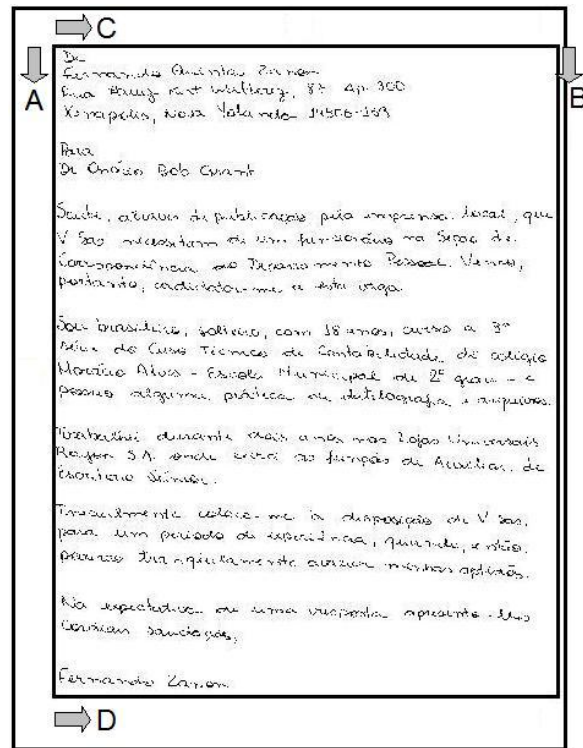 C
A
B
De
Fernando Quintas Zanon
Rua 87 Ap. 300
Xenapolis, Nova Yolanda
Para
De Onório Bob Grant
Soube, através de publicação pela imprensa local, que
V Sas necessitam de um funcionário na Seção de
Correspondência do Departamento Pessoal. Venho,
portanto, candidatar-me a esta vaga
Sou brasileiro, solteiro, com 18 anos, curso a 3ª
série do Curso Técnico de Contabilidade do colégio
Alves - Escola Municipal de 2º grau - e
possuo alguma prática de datilografia e arquivos.
Trabalhei durante dois anos nas Lojas Universais
S.A. onde a função de Auxiliar de
Escritório
coloco-me à disposição de V Sas.
para um período de experiência, quando, então,
minhas
Na expectativa de uma resposta apresento-lhes
Fernando Zanon
D